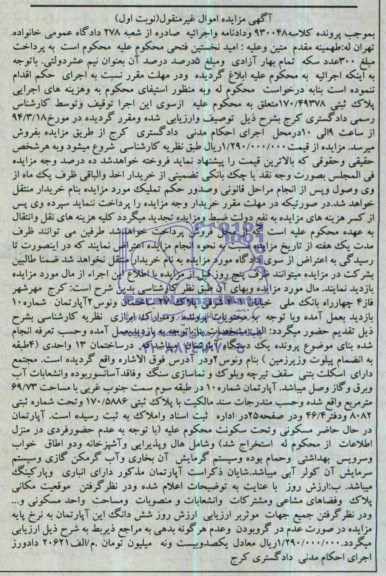 آگهی مزایده اموال غیرمنقول(نوبت اول)
بموجب پرونده کلاسه ۹۳۰۰۴۸ ودادنامه واجرائیه صادره از شعبه ۲۷۸ دادگاه عمومی خانواده
تهران له:طهمینه مقدم متین وعلیه : امید نخستین فتحی محکوم علیه محکوم است به پرداخت
مبلغ ۳۰۰عدد سکه تمام بهار آزادی ومبلغ ۵درصد درصد آن بعنوان نیم عشردولتی. باتوجه
به اینکه اجرائیه به محکوم علیه ابلاغ گردیده ودر مهلت مقرر نسبت به اجرای حکم اقدام
ننموده است بنابه درخواست محکوم له وبه منظور استیفای محکوم به وهزینه های اجرایی
پلاک ثبتی ۱۷۰/۴۹۳۷۸متعلق به محکوم علیه ازسوی این اجرا توقیف وتوسط کارشناس
رسمی دادگستری کرج بشرح ذیل توصیف وارزیابی شده ومقرر گردیده در مورخ۹۴/۳/۱۸
از ساعت ۹الی ۱۰درمحل اجرای احکام مدنی دادگستری کرج از طریق مزایده بفروش
میرسد. مزایده از قیمت۱/۲۹۰/۰۰۰/۰۰۰ریال طبق نظریه کارشناسی شروع میشود وبه هرشخص
حقیقی وحقوقی که بالاترین قیمت را پیشنهاد نماید فروخته خواهدشد ده درصد وجه مزایده
فی المجلس بصورت وجه نقد یا چک بانکی تضمینی از خریدار اخذ والباقی ظرف یک ماه از
وی وصول وپس از انجام مراحل قانونی وصدور حکم تملیک مورد مزایده بنام خریدار منتقل
خواهد شد.در صورتیکه در مهلت مقرر خریدار وجه مزایده را پرداخت ننماید سپرده وی پس
از کسر هزینه های مزایده به نفع دولت ضبط ومزایده تجدید میگردد کلیه هزینه های نقل وانتقال
به عهده محکوم علیه است پرداخت خواهدشد طرفین می توانند ظرف
مدت یک هفته از تاریخ مزایده به نحوه انجام مزایده اعتراض نمایند که در اینصورت تا
رسیدگی به اعتراض از سوی دادگاه مورد مزایده به نام خریدار منتقل نخواهد شد ضمنا طالبین
بشرکت در مزایده میتوانند ظرف پنج روز قبل از مزایده با اطلاع این اجراء از مال مورد مزایده
بازدید نمایند. مال مورد مزایده وبهای آن طبق نظر کارشناسی بدین شرح است: کرج مهرشهر
فاز۴ چهارراه بانک ملی خیابان پلاک ونوس ۲آپارتمان شماره۱۰
بازدید بعمل آمده وبا توجه به محتویات پرونده ومدارک ابرازی نظریه کارشناسی بشرح
ذیل تقدیم حضور میگردد: الف:مشخصات باتوجه به بازدیدبعمل آمده وحسب تعرفه انجام
شده بنای موضوع پرونده یک دستگاه آپارتمان میباشدکه درساختمان ۱۳ واحدی (۴طبقه
به انضمام پیلوت وزیرزمین ) بنام ونوس۲ودر آدرس فوق الاشاره واقع گردیده است. مجتمع
دارای اسکلت بتنی سقف تیرچه وبلوک و نماسازی سنگ وفاقدآسانسوربوده وانشعابات آب
وبرق وگاز وصل میباشد. آپارتمان شماره۱۰ در طبقه سوم سمت جنوب غربی با مساحت ۶۹/۷۳
مترمربع واقع شده وحسب مندرجات سند مالکیت با پلاک ثبتی ۱۷۰/۵۸۸۶ وتحت شماره ثبتی
۸۰۸۲ ودفتر۴۶/۴ ودر صفحه۲۵در اداره ثبت اسناد واملاک به ثبت رسیده است. آپارتمان
در حال حاضر مسکونی وتحت سکونت محکوم علیه (با توجه به عدم حضورفردی در منزل
اطلاعات از محکوم له استخراج شد) وشامل هال وپذیرایی وآشپزخانه ودو اطاق خواب
وسرویس بهداشتی وحمام بوده وسیستم گرمایش آن بخاری وآب گرمکن گازی وسیستم
سرمایش آن کولر آبی میباشد.شایان ذکراست آپارتمان مذکور دارای انباری وپارکینگ
میباشد. ب:ارزش روز با عنایت به توضیحات اعلام شده ودر نظرگرفتن موقعیت مکانی
پلاک وفضاهای مشاعی ومشترکات وانشعابات و منصوبات ومساحت واحد مسکونی و...
ودر نظرگرفتن جمیع جهات موثربر ارزیابی ارزش روز شش دانگ این آپارتمان به نرخ پایه
مزایده در صورت عدم در گروبودن وعدم هر گونه بدهی به مراجع ذیربط به شرح ذیل ارزیابی
میگردد.۱/۲۹۰/۰۰۰/۰۰۰ریال معادل یکصدوبیست ونه میلیون تومان .م/الف۲۰۶۲۱ دادورز
اجرای احکام مدنی دادگستری کرج